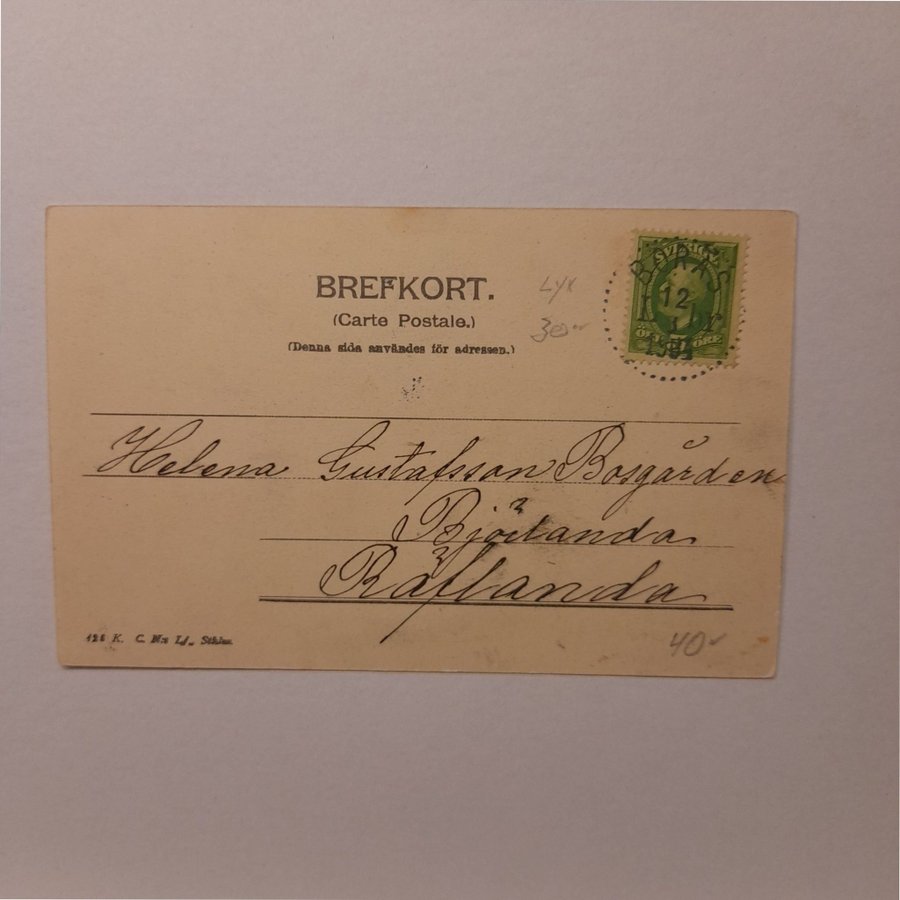 BREFKORT.
(Carte Postale.)
(Denna sida användes för adressen.)
LYX
30:-
SVERIGE
BORÅS
12
1
ÖRE 5 ÖRE
Helena Gustafsson Bosgården
Björlanda
Räflanda
40:-